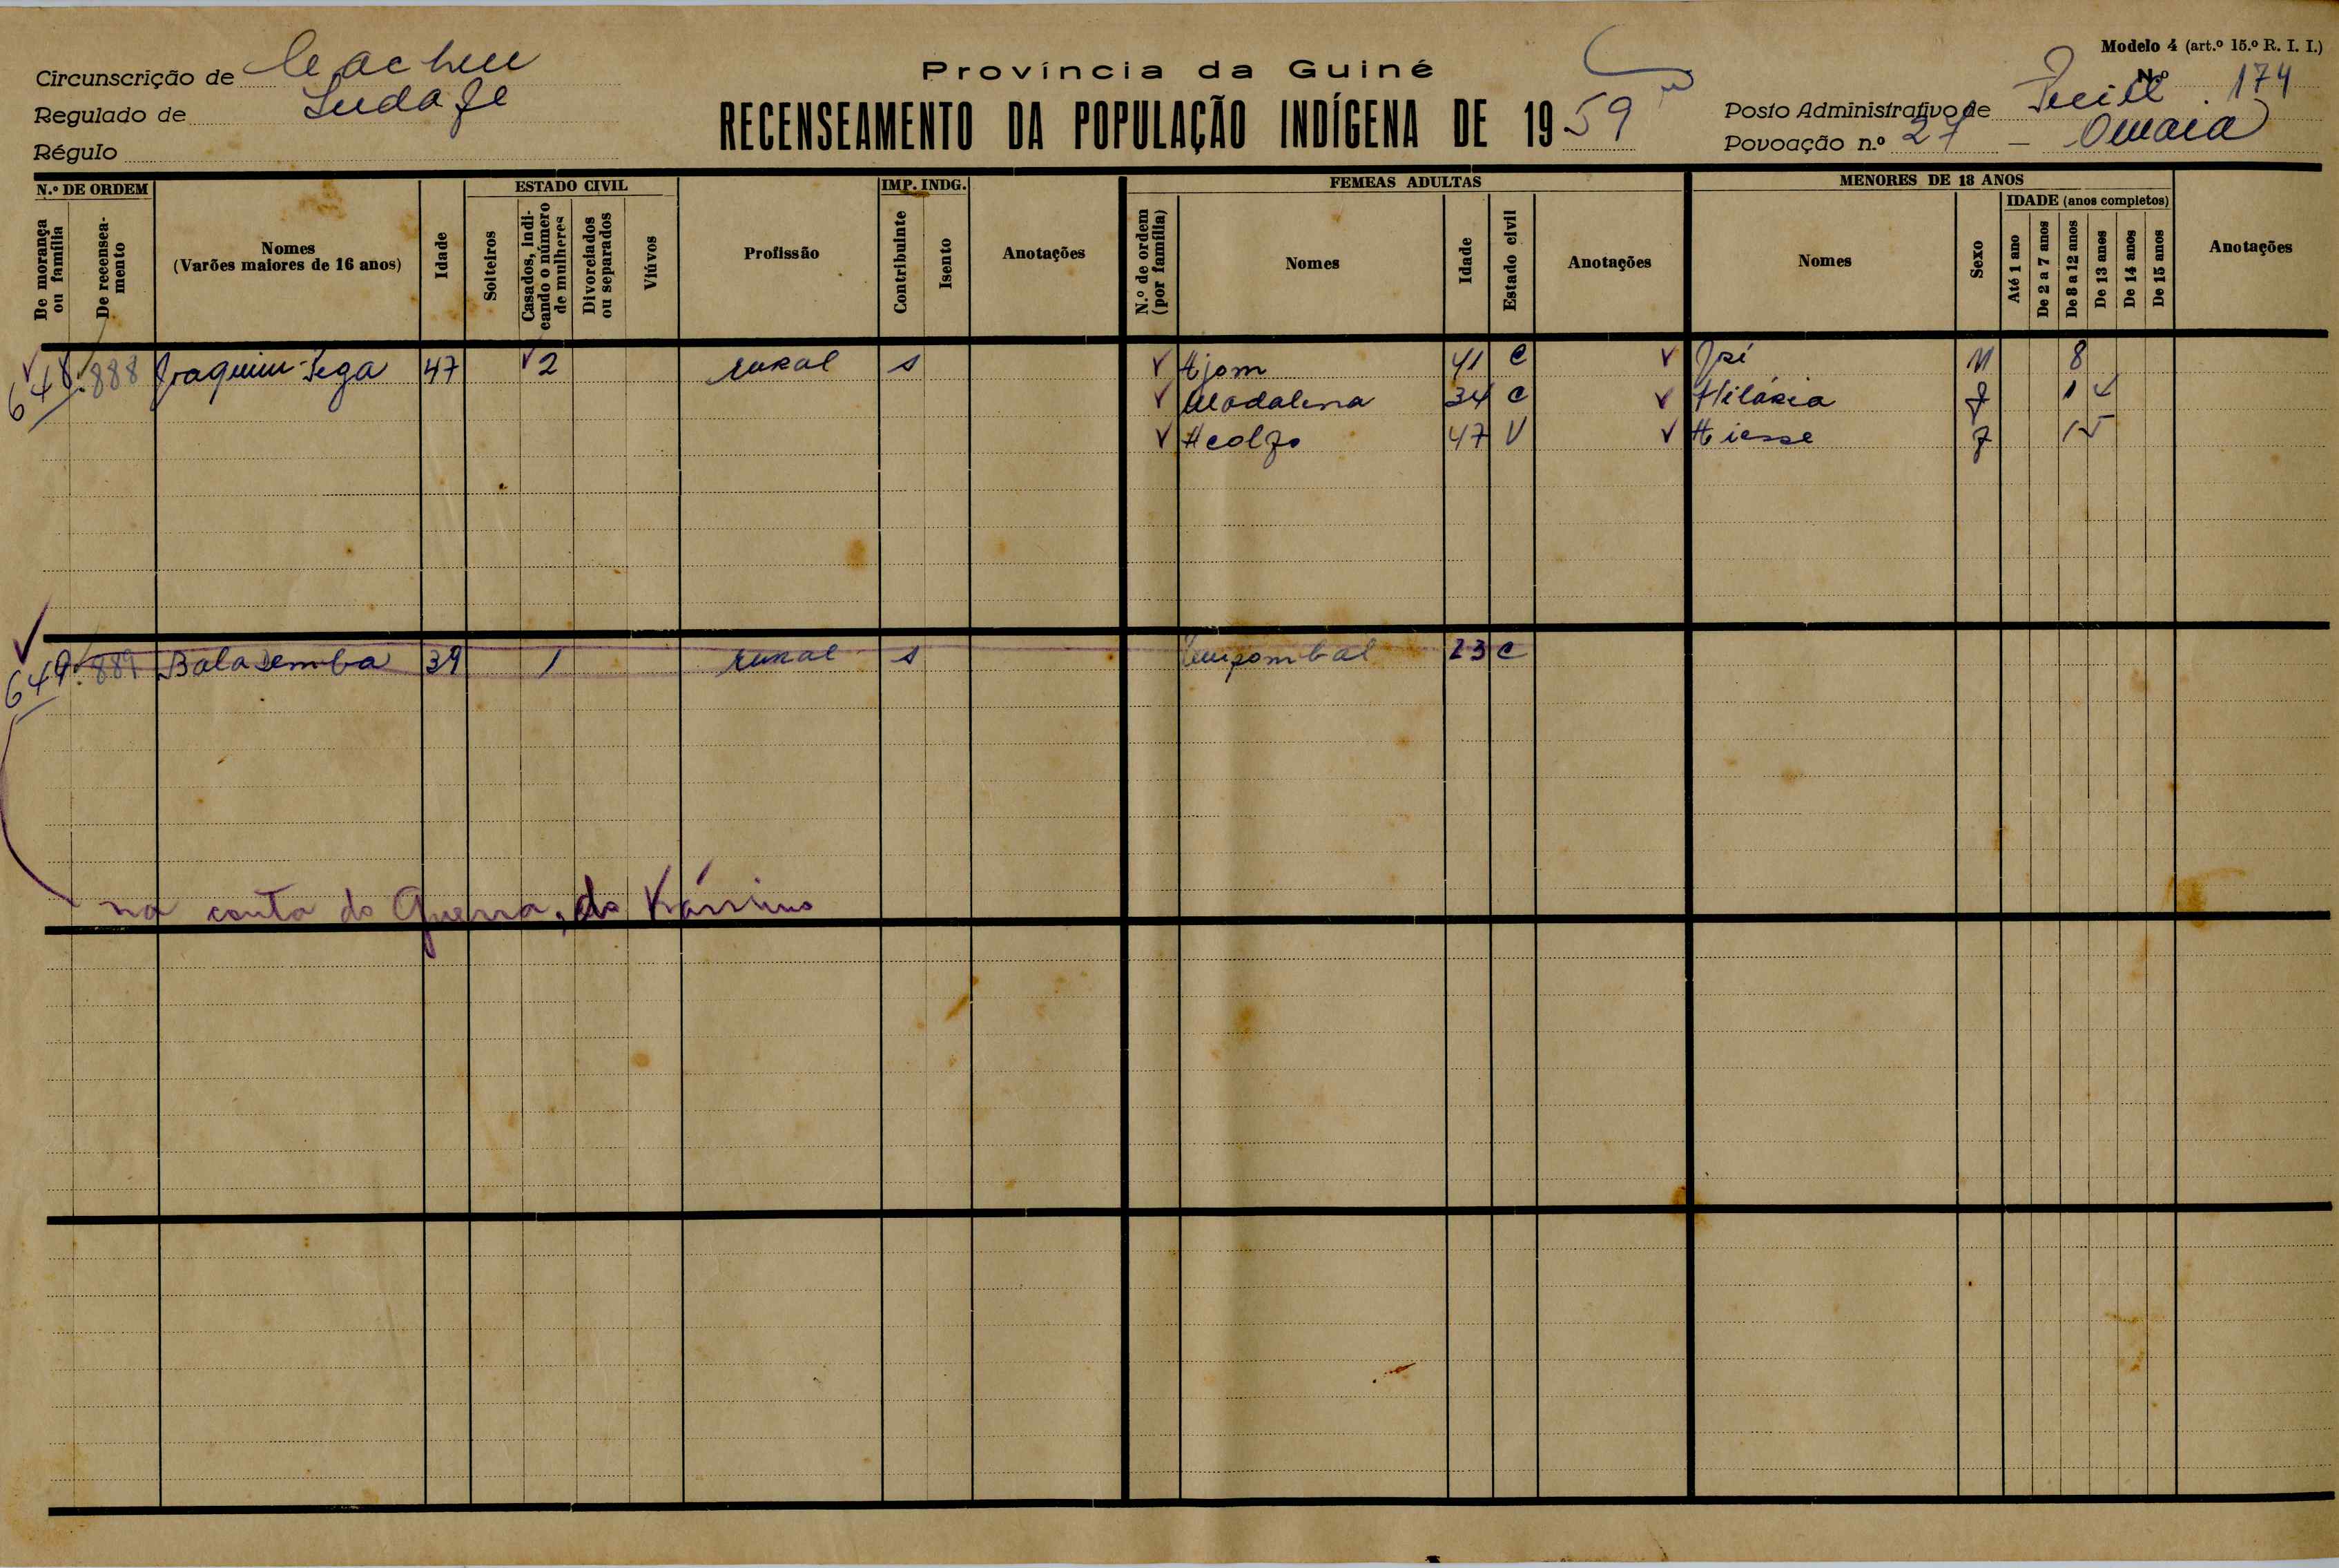 Modelo 4 (art.º 15.º R. I. I.)
Província da Guiné
RECENSEAMENTO DA POPULAÇÃO INDÍGENA DE 1959
Circunscrição de Cacheu
Regulado de
Régulo
N.º 174
Posto Administrativo de
Povoação n.º 27 —
N.º DE ORDEM
De morança ou família
De recenseamento
Nomes
(Varões maiores de 16 anos)
Idade
ESTADO CIVIL
Solteiros
Casados, indicando o número de mulheres
Divorciados ou separados
Viúvos
Profissão
IMP. INDG.
Contribuinte
Isento
Anotações
FEMEAS ADULTAS
N.º de ordem (por família)
Nomes
Idade
Estado civil
Anotações
MENORES DE 18 ANOS
Nomes
Sexo
IDADE (anos completos)
Até 1 ano
De 2 a 7 anos
De 8 a 12 anos
De 13 anos
De 14 anos
De 15 anos
Anotações
648 888 Joaquim 47 2 rural s Ajom 41 C M 8
Madalena 34 C Hilária f 14
47 V f 15
649 889 Bala Semba 39 1 rural s 23 C
na conta do